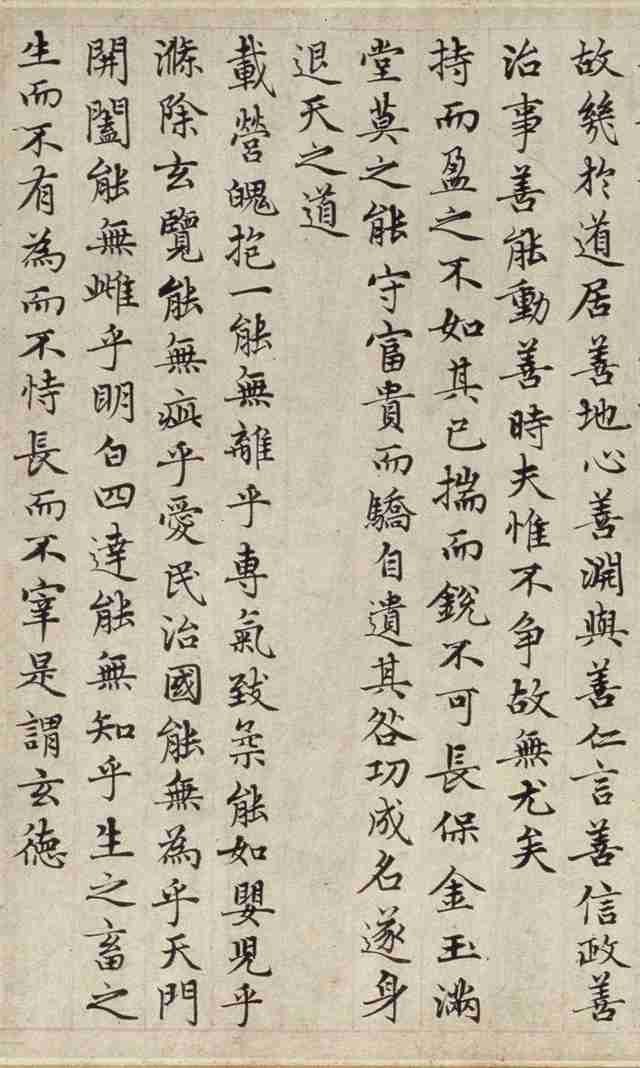 故幾於道居善地心善淵與善仁言善信政善
治事善能動善時夫惟不争故無尤矣
持而盈之不如其已揣而銳不可長保金玉滿
堂莫之能守富貴而驕自遺其咎功成名遂身
退天之道
載營魄抱一能無離乎専氣致柔能如嬰児乎
滌除玄覽能無疵乎愛民治國能無為乎天門
開闔能無雌乎明白四達能無知乎生之畜之
生而不有為而不恃長而不宰是謂玄徳